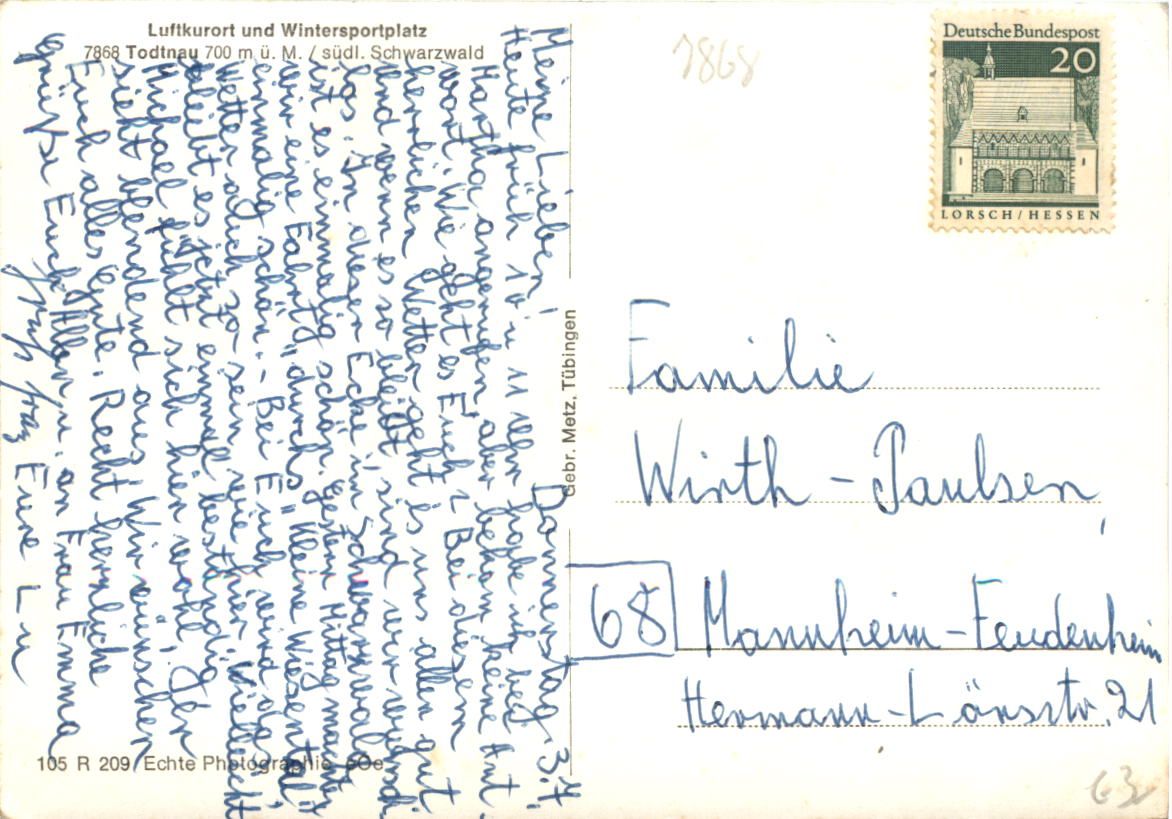 Luftkurort und Wintersportplatz
7868 Todtnau 700 m ü. M. / südl. Schwarzwald
Donnerstag. 3.7.
Meine Lieben!
Heute früh 10 u 11 Uhr habe ich bei
Martha angerufen, aber bekam keine Ant
wort. Wie geht es Euch? Bei diesem
herrlichen Wetter geht es uns allen gut
und wenn es so bleibt sind wir
los. In diesen Ecke im Schwarzwald
ist es einmalig schön. Gestern Mittag machten
wir eine Fahrt durch's "kleine Wiesental",
einmalig schön. – Bei Euch wird das
Wetter auch so sein wie hier. Vielleicht
bleibt es jetzt einmal beständig.
Michael fühlt sich hier wohl, Jən
sieht blendend aus. Wir wünschen
Euch alles Gute. Recht herzliche
Grüße Euch Allen u. an Frau Emma
Eure Lu
Gebr. Metz, Tübingen
105 R 209 Echte Photographie
7868
Deutsche Bundespost
20
LORSCH/HESSEN
Familie
Wirth - Paulsen
68 Mannheim-Feudenheim
Hermann-Lönsstr. 21
63